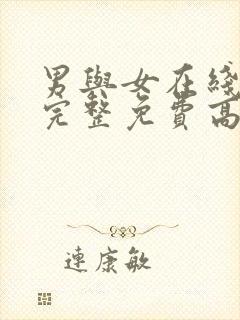 男與女在綫
完整免費高
連康敏